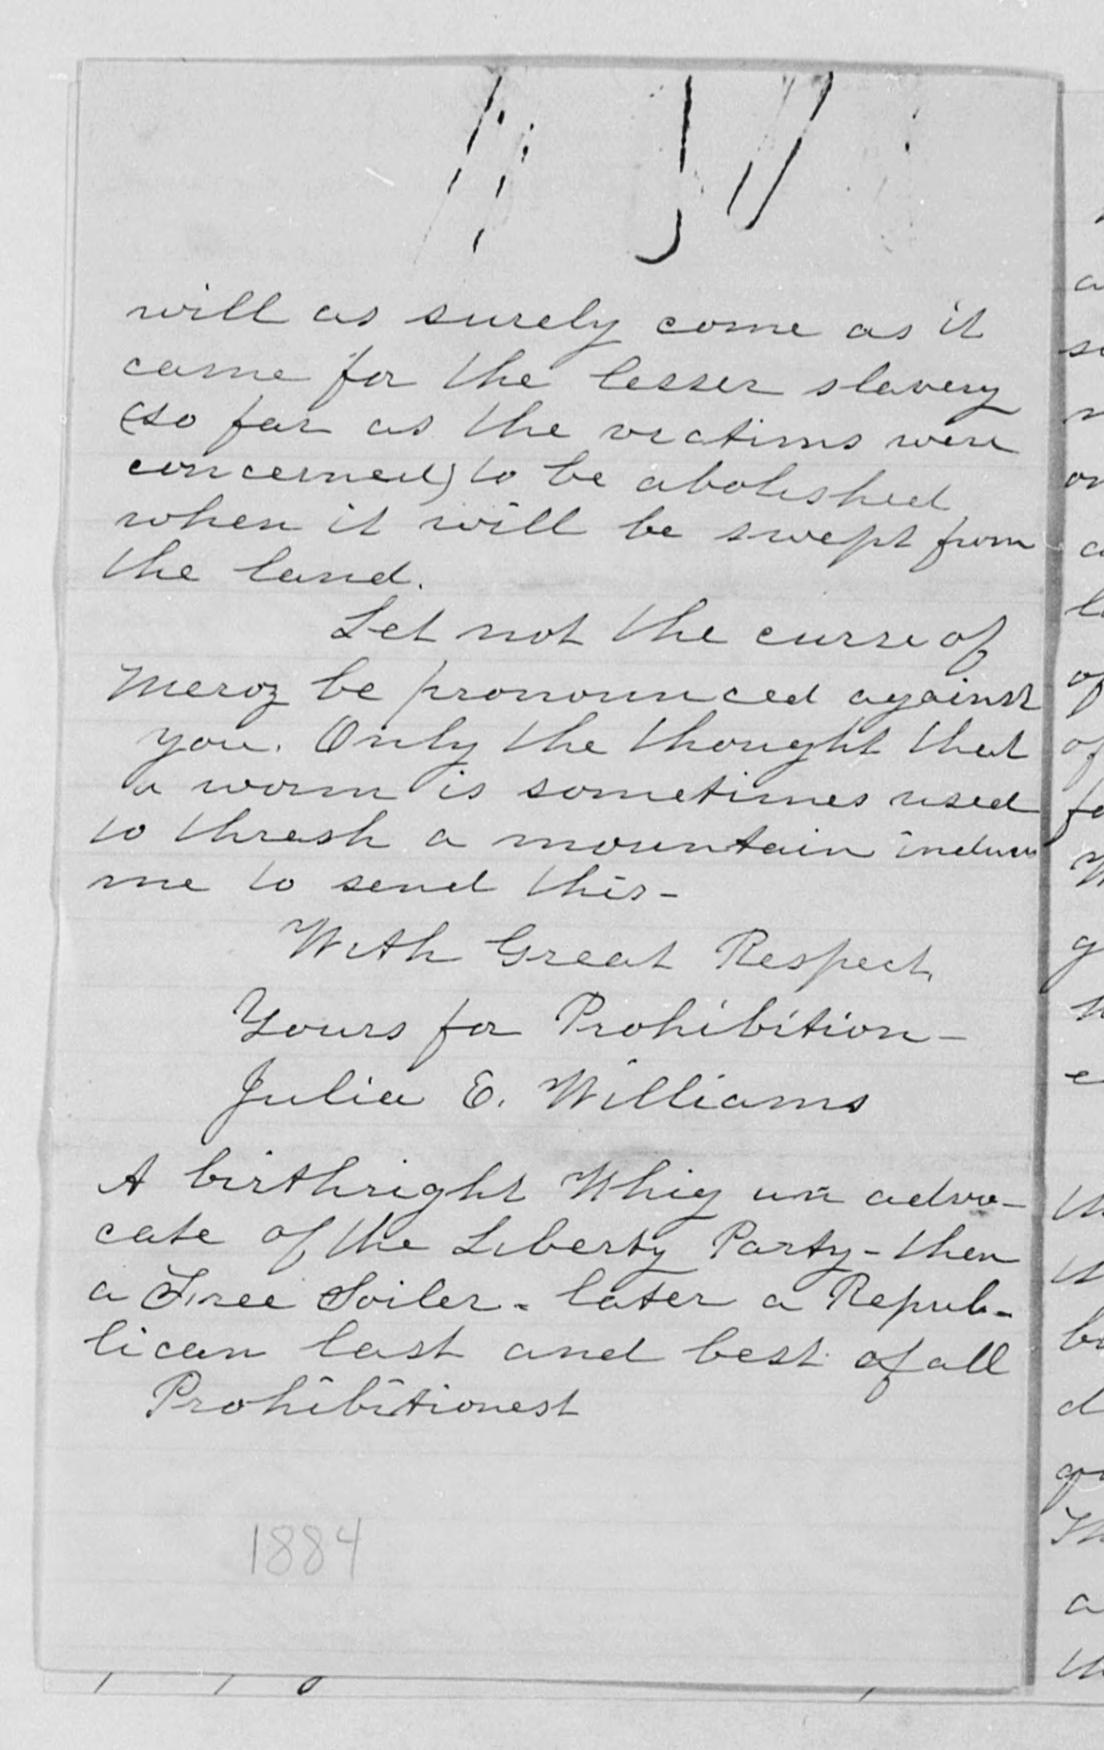 will as surely come as it
came for the lesser slavery
(so far as the victims were
concerned) to be abolished
when it will be swept from
the land.
Let not the curse of
Meroz be pronounced against
you. Only the thought that
a worm is sometimes used
to thresh a mountain
me to send this-
With Great Respect,
Yours for Prohibition-
Julia E. Williams
A birthright Whig advo-
cate of the Liberty Party - then
a Free Soiler - later a Repub-
lican last and best of all
Prohibitionest
1884